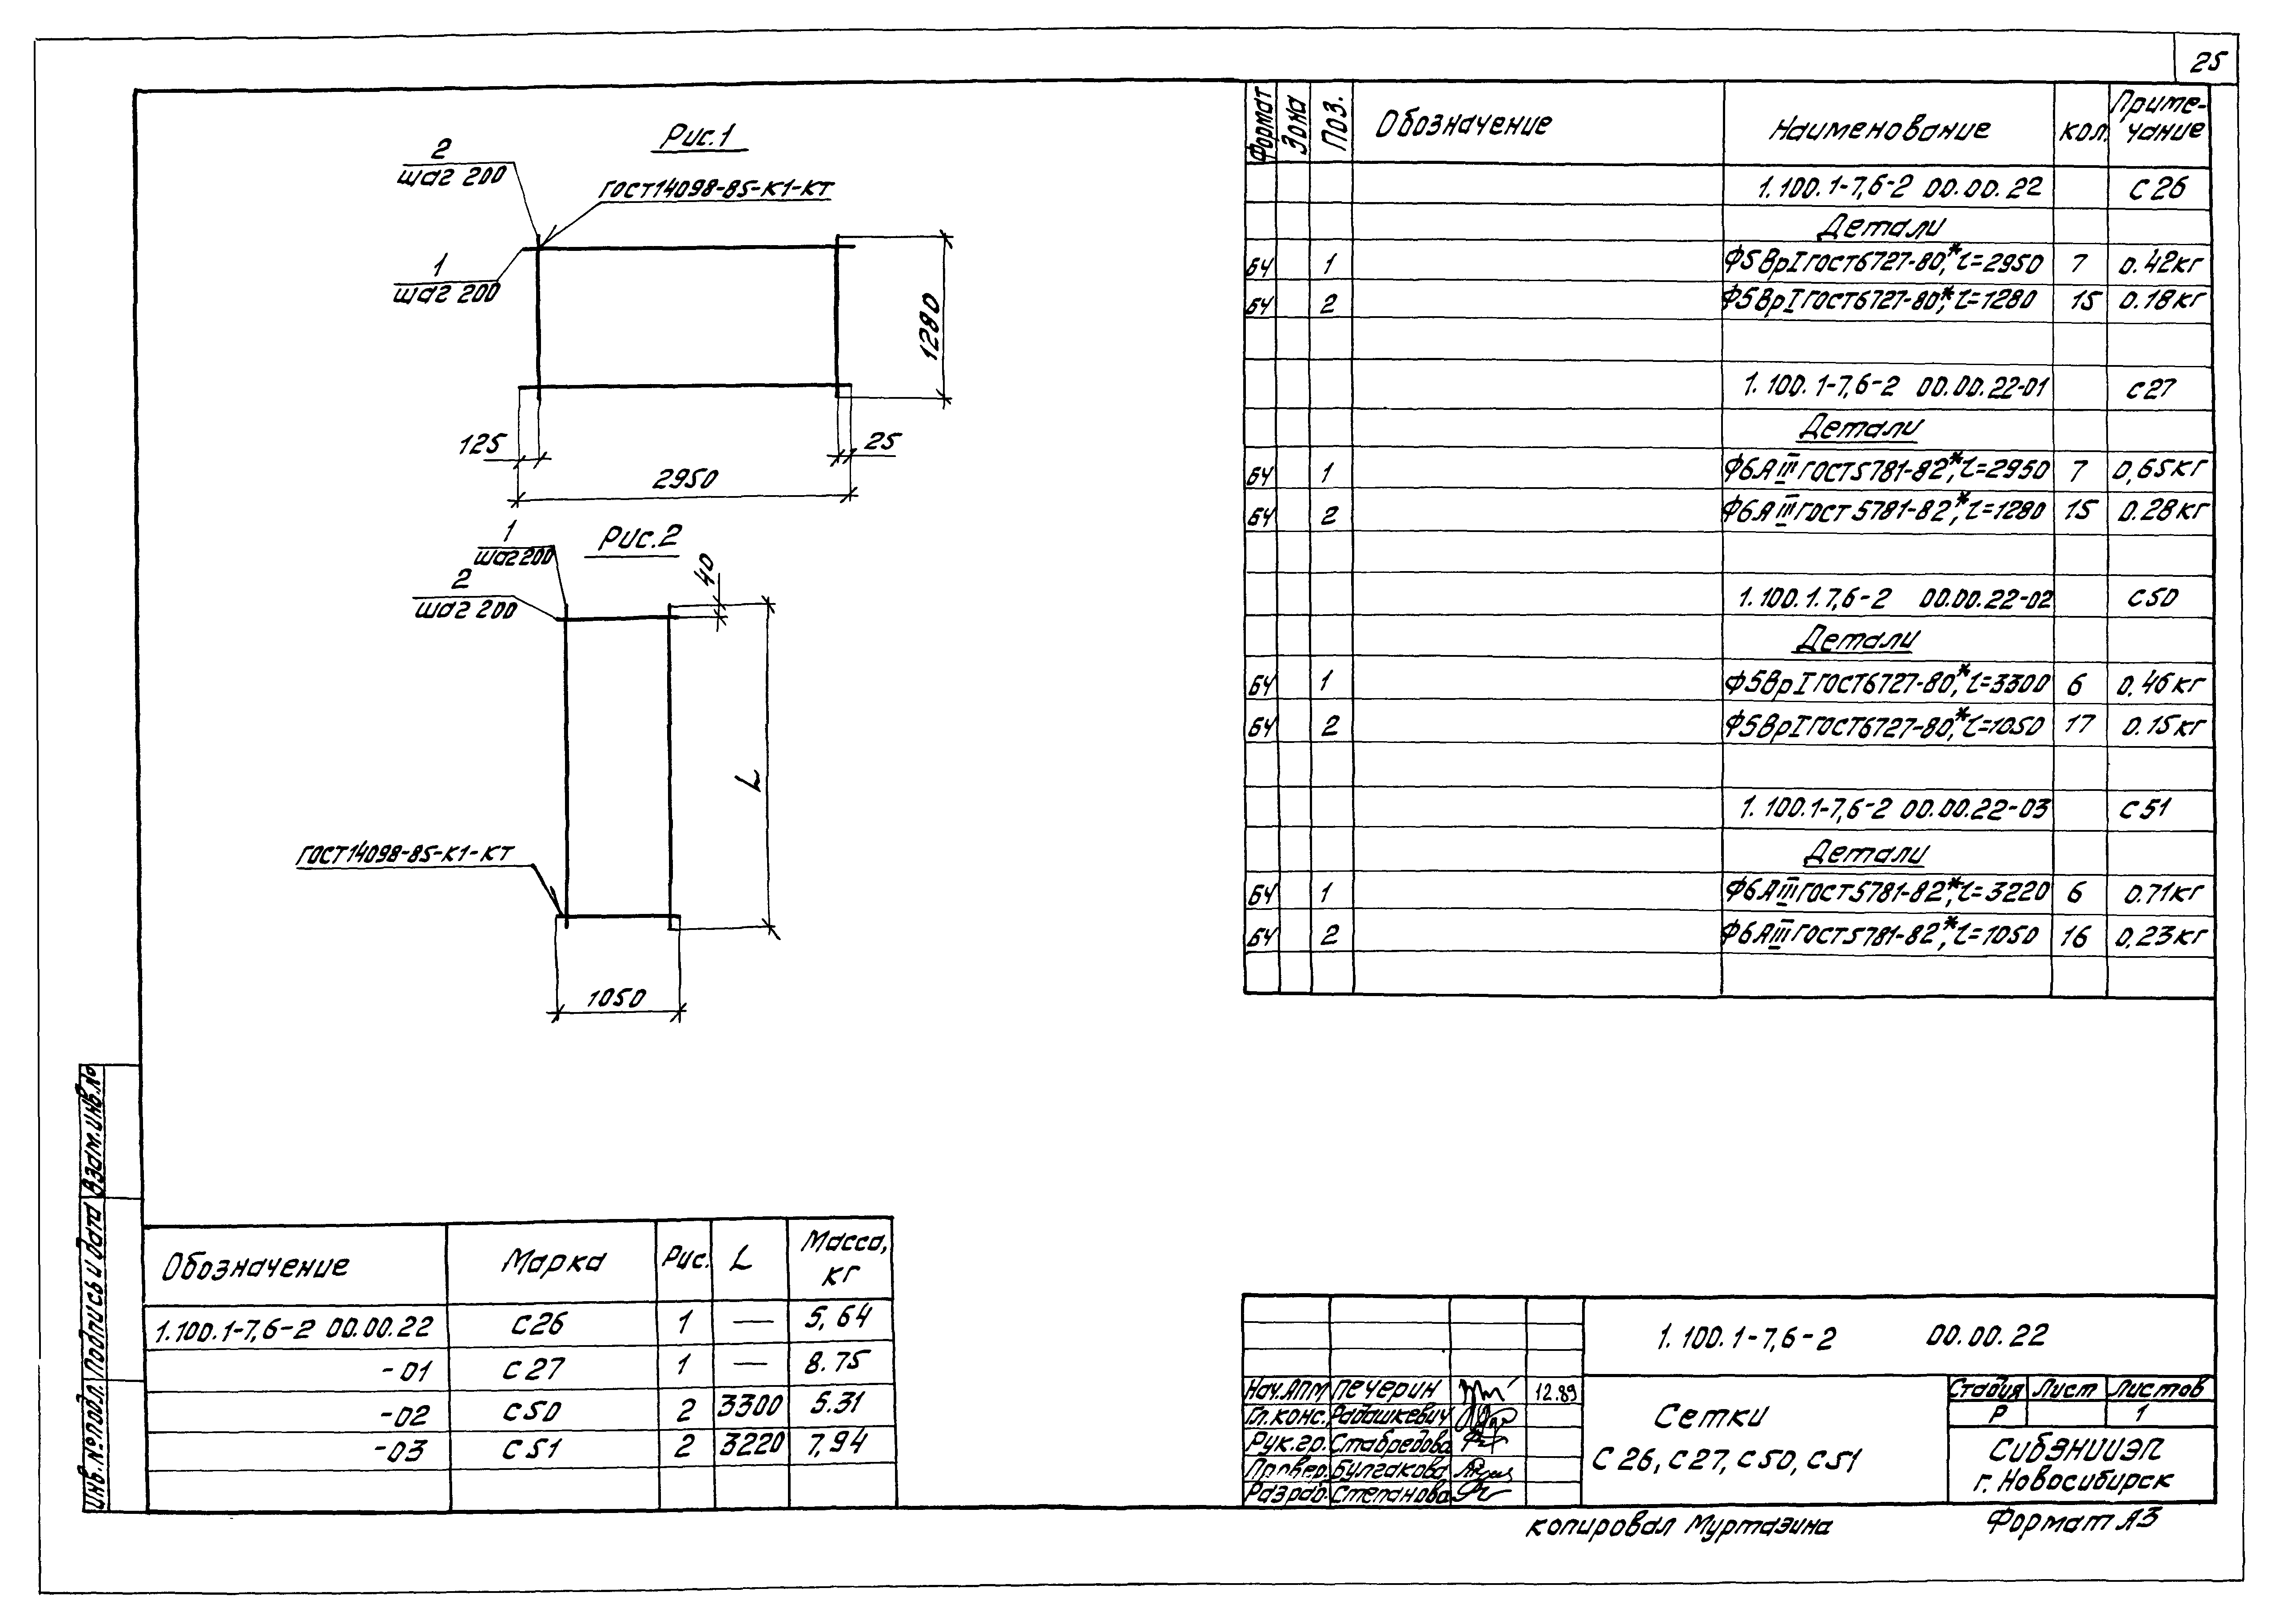 25
Рис.1
2
шаг 200
ГОСТ14098-85-К1-КТ
1
шаг 200
1280
125
25
2950
Рис.2
1
шаг 200
2
шаг 200
40
L
ГОСТ14098-85-К1-КТ
1050
Формат Зона Поз. Обозначение Наименование Кол. Приме-
чание
1.100.1-7,6-2 00.00.22 С26
Детали
БЧ 1 Ф5ВрI ГОСТ6727-80*, l=2950 7 0.42кг
БЧ 2 Ф5ВрI ГОСТ6727-80*, l=1280 15 0.18кг
1.100.1-7,6-2 00.00.22-01 С27
Детали
БЧ 1 Ф6АIII ГОСТ5781-82*, l=2950 7 0,65кг
БЧ 2 Ф6АIII ГОСТ 5781-82*, l=1280 15 0.28кг
1.100.1.7,6-2 00.00.22-02 С50
Детали
БЧ 1 Ф5ВрI ГОСТ6727-80*, l=3300 6 0,46кг
БЧ 2 Ф5ВрI ГОСТ6727-80*, l=1050 17 0.15кг
1.100.1-7,6-2 00.00.22-03 С51
Детали
БЧ 1 Ф6АIII ГОСТ5781-82*, l=3220 6 0.71кг
БЧ 2 Ф6АIII ГОСТ5781-82*, l=1050 16 0,23кг
Взам.инв.№
Подпись и дата
Инв.№подл.
Обозначение Марка Рис. L Масса,
кг
1.100.1-7,6-2 00.00.22 С26 1 — 5,64
-01 С27 1 — 8.75
-02 С50 2 3300 5.31
-03 С51 2 3220 7,94
1.100.1-7,6-2 00.00.22
Нач.АПМ Печерин 12.89
Гл.конс. Радашкевич
Рук.гр. Стабредова
Провер. Булгакова
Разраб. Степанова
Сетки
С26, С27, С50, С51
Стадия Лист Листов
Р 1
СибЗНИИЭП
г. Новосибирск
Копировал Муртазина Формат А3